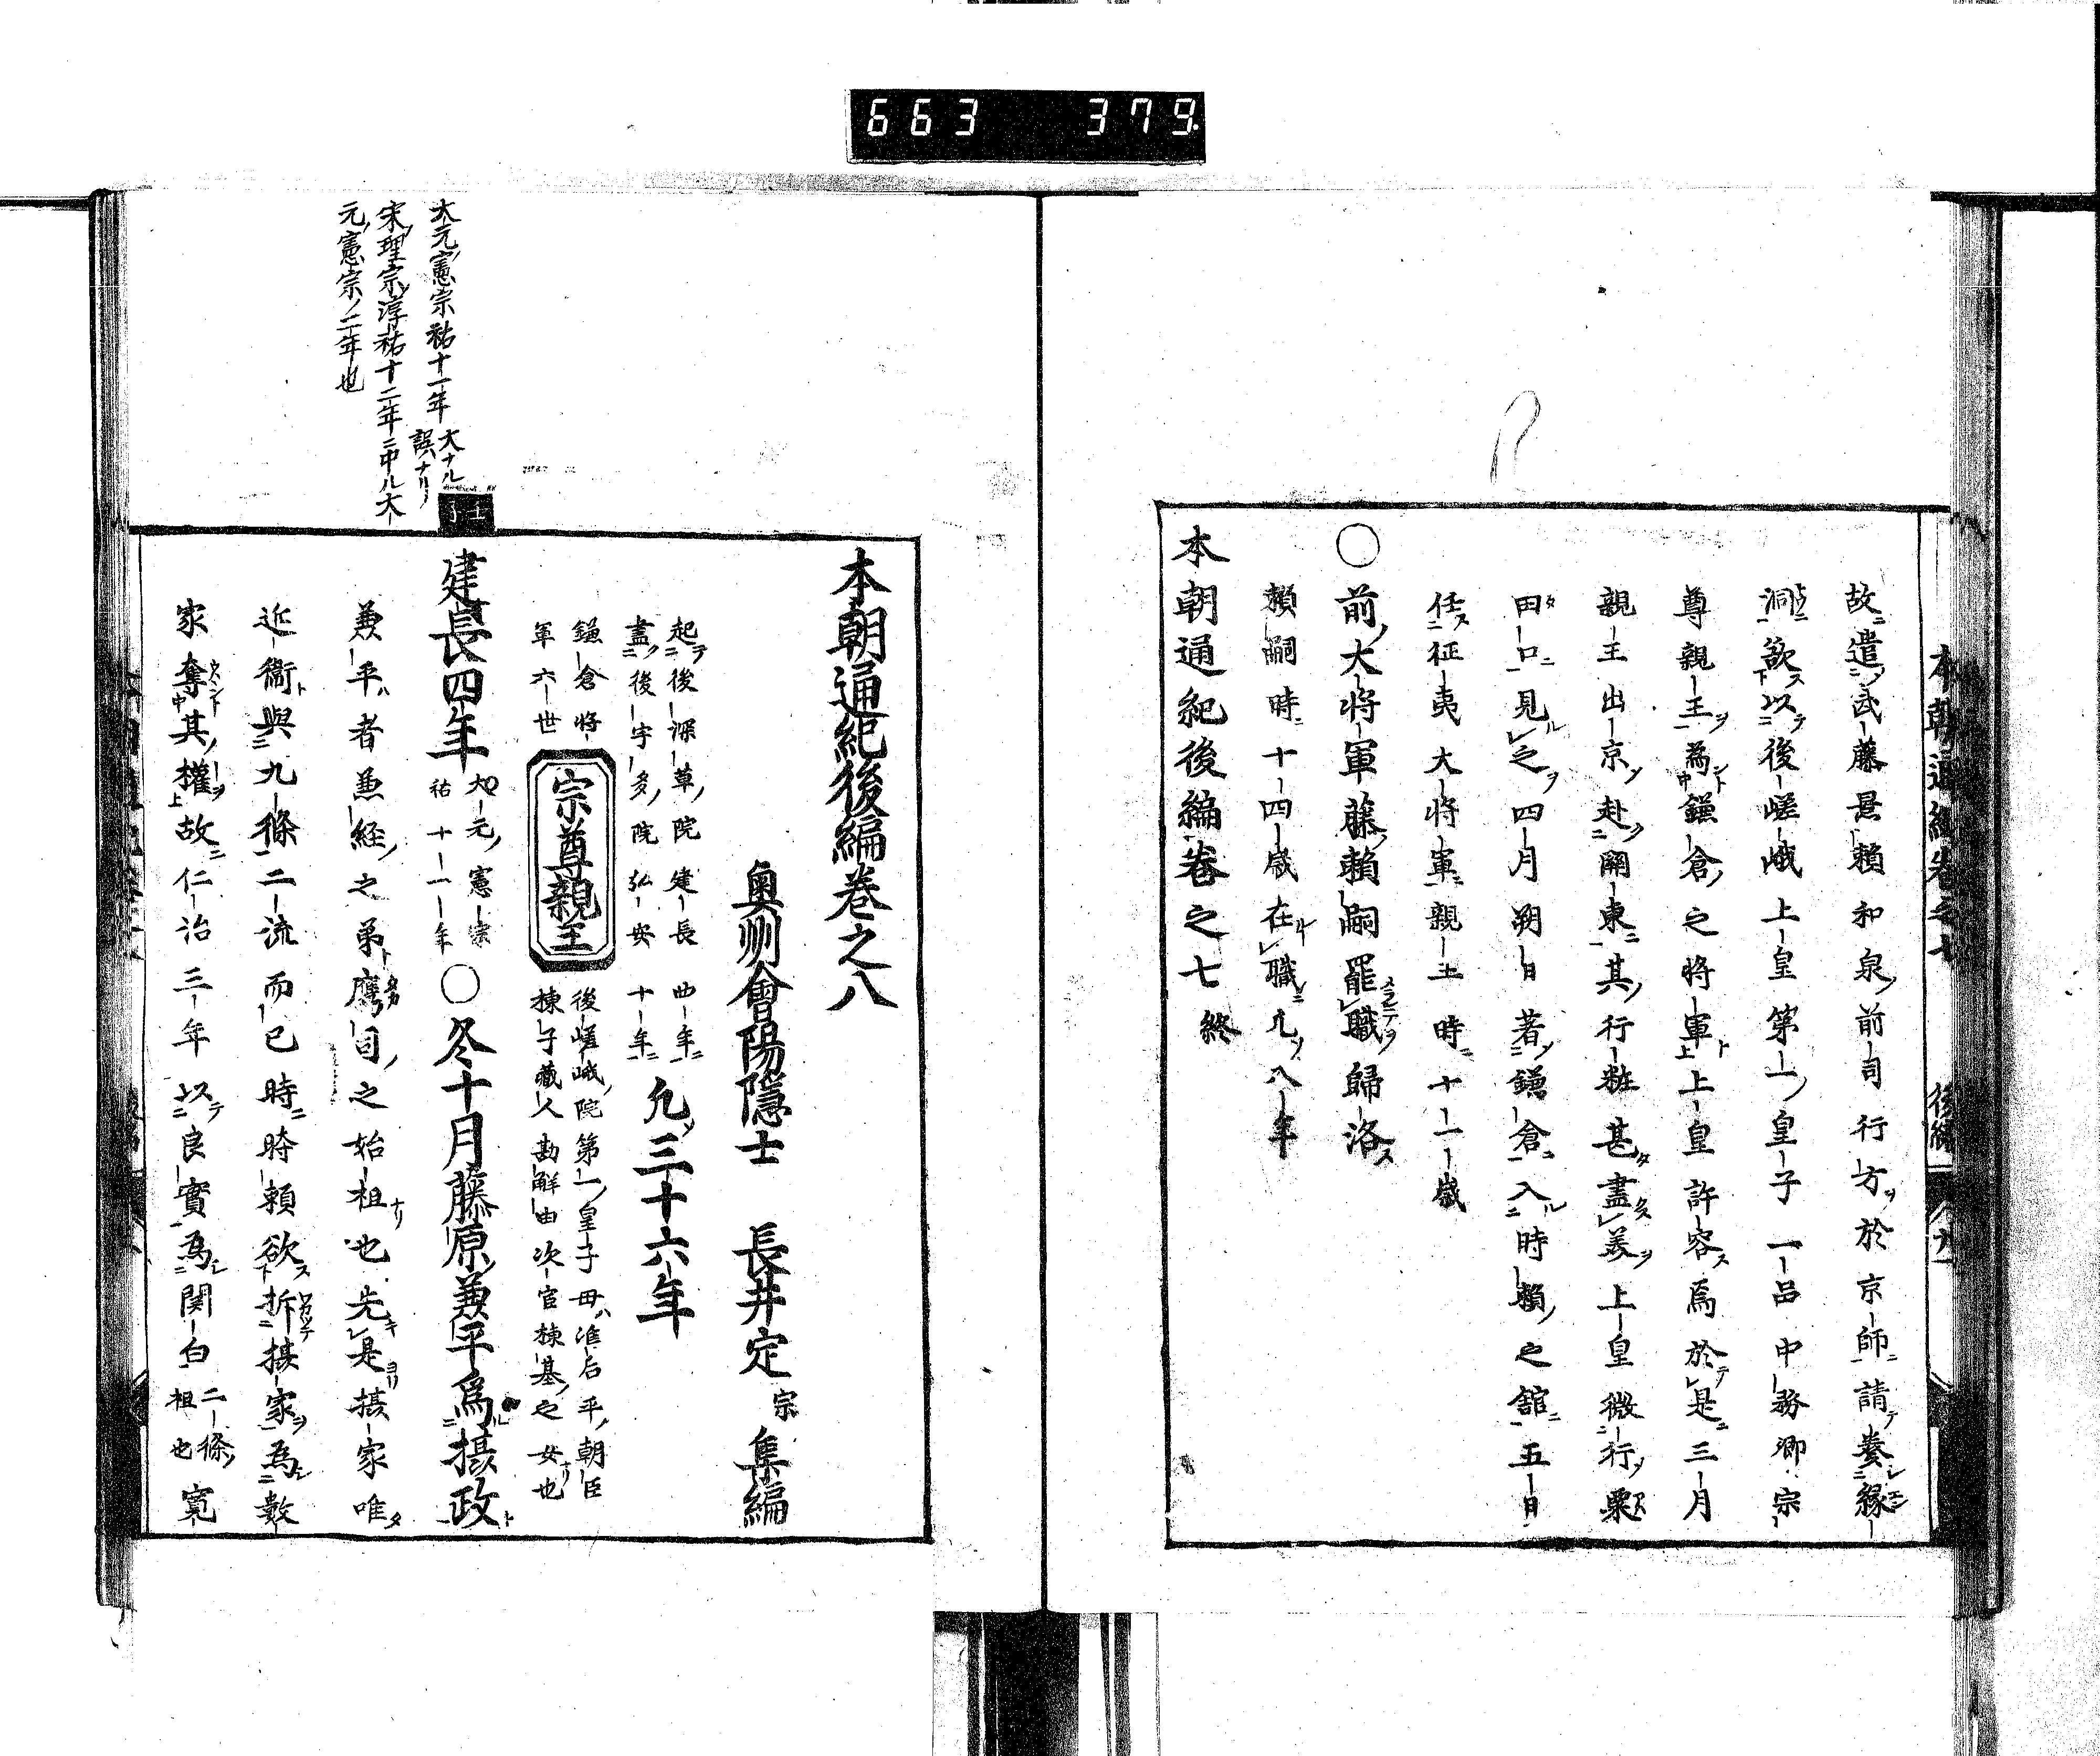 663 379
本朝通紀卷之七 後編
故遣武藤景頼和泉前司行方於京師請奏緣
洞欲以後嵯峨上皇第一皇子一品中務卿宗
尊親王為鎌倉之將軍上皇許容焉於是三月
親王出京赴關東其行粧甚盡美上皇微行粟
田口見之四月朔日著鎌倉入時頼之舘五日
任征夷大將軍親王時十一歲
〇前大將軍藤頼嗣罷職歸洛
頼嗣時十四歲在職凡八年
本朝通紀後編卷之七終
本朝通紀後編卷之八
奧州會陽隱士 長井定宗集編
起後深草院建長四年
盡後宇多院弘安十年
凡三十六年
鎌倉將
軍六世
宗尊親王
後嵯峨院第一皇子母准后平朝臣
棟子藏人勘解由次官棟基之女也
建長四年
大元憲宗
祐十一年
〇冬十月藤原兼平爲攝政
兼平者兼経之弟鷹司之始祖也先是攝家唯
近衞與九條二流而已時時頼欲拆攝家為數
家奪其權故仁治三年以良實為関白
二條
祖也
寛
大元憲宗祐十一年
大ナル
誤ナリ
宋理宗淳祐十二年ニ中ル大
元憲宗ノ二年也